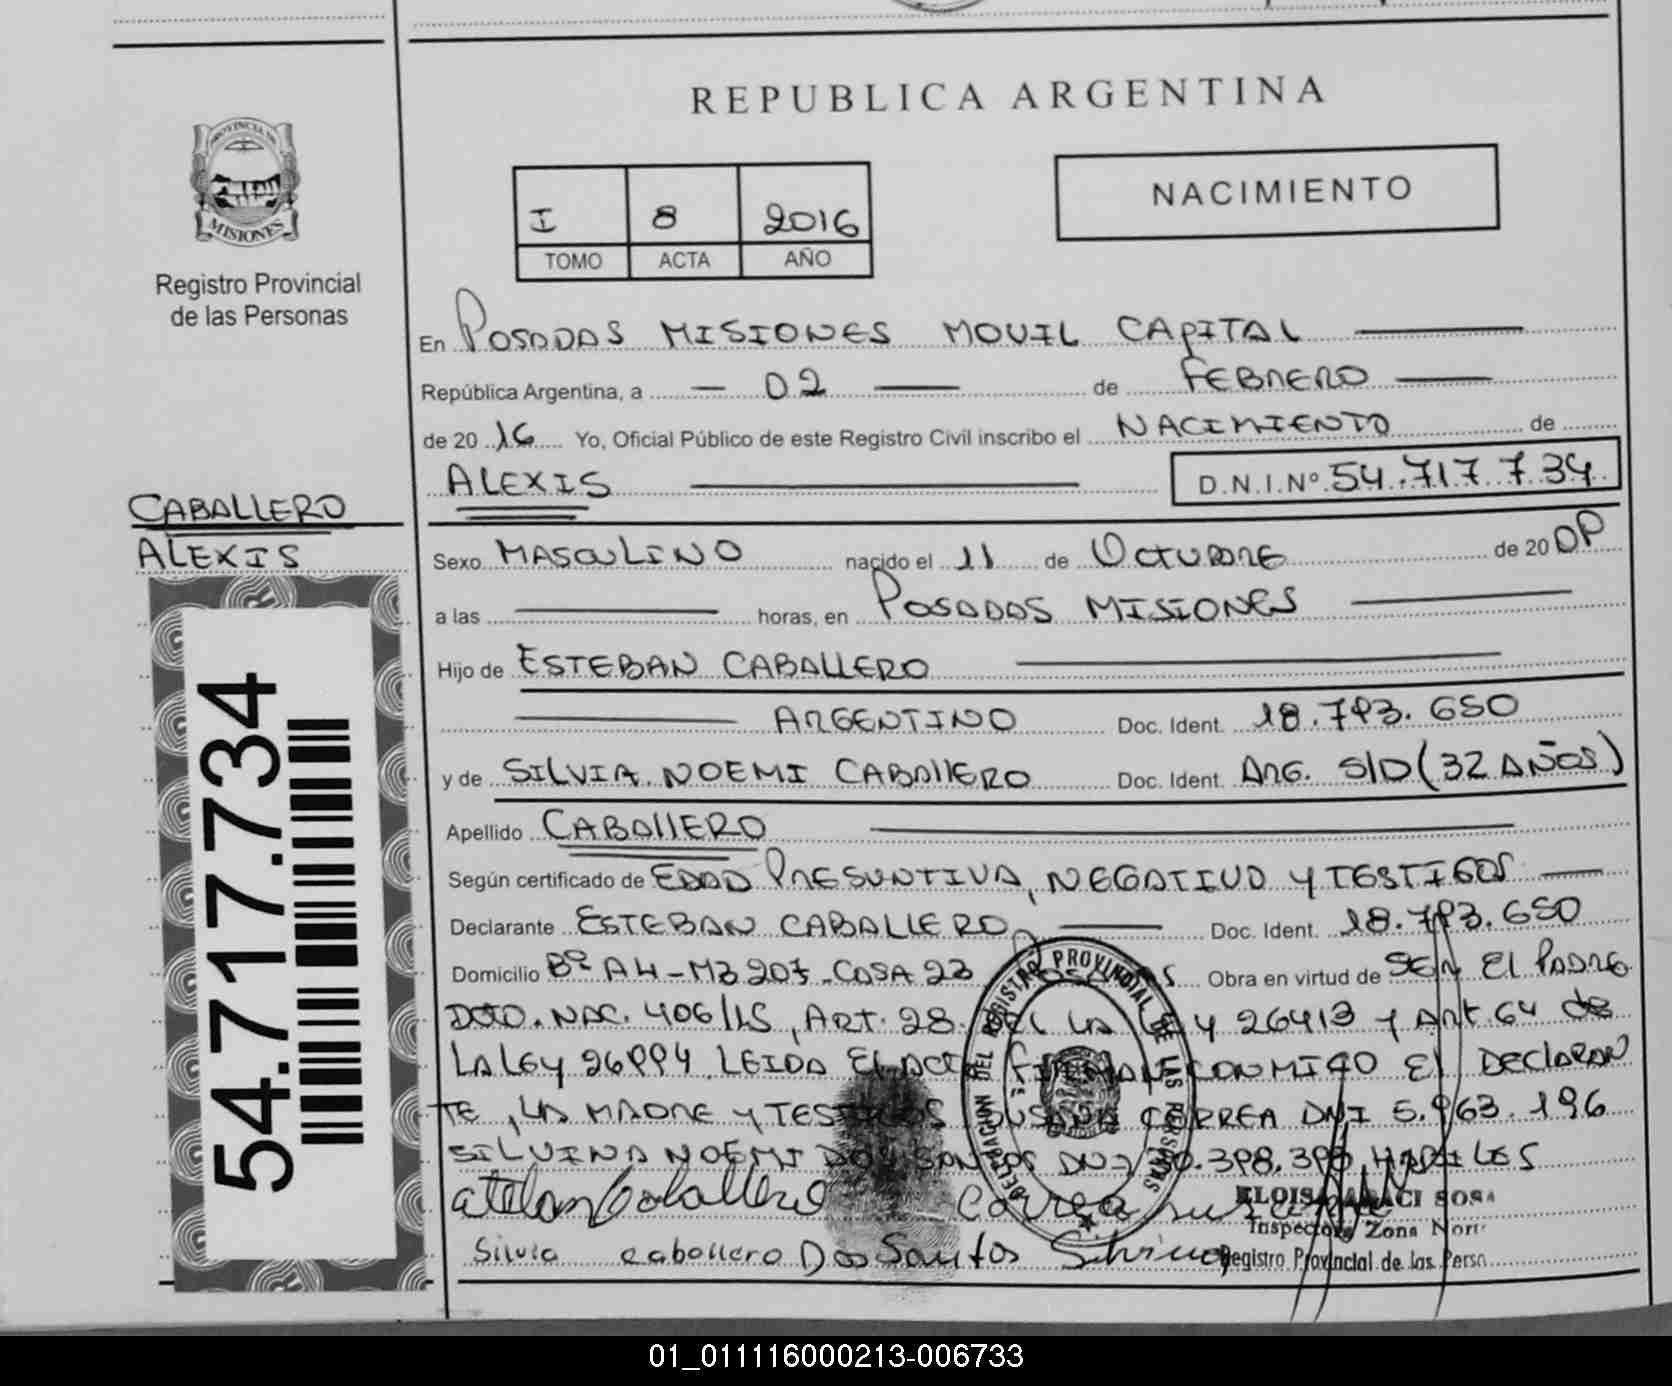 REPUBLICA ARGENTINA
PROVINCIA DE
MISIONES
Registro Provincial
de las Personas
NACIMIENTO
I 8 2016
TOMO ACTA AÑO
En POSADAS MISIONES MOVIL CAPITAL
República Argentina, a 02 de FEBRERO
de 20 16 Yo, Oficial Público de este Registro Civil inscribo el NACIMIENTO de
ALEXIS D.N.I.Nº 54.717.734
CABALLERO
ALEXIS
54.717.734
Sexo MASCULINO nacido el 11 de OCTUBRE de 20 09
a las horas, en POSADAS MISIONES
Hijo de ESTEBAN CABALLERO
ARGENTINO Doc. Ident. 18.793.650
y de SILVIA NOEMI CABALLERO Doc. Ident. ARG. S/D (32 AÑOS)
Apellido CABALLERO
Según certificado de EDAD PRESUNTIVA, NEGATIVO Y TESTIGOS
Declarante ESTEBAN CABALLERO Doc. Ident. 18.793.650
Domicilio Bº A4-MZ 207-CASA 23 Obra en virtud de SER EL PADRE
DCTO. NAC. 406/15, ART. 28 LA LEY 26413 Y ART. 64 de
LA LEY 26994. LEIDA EL ACTA CONMIGO EL DECLARAN
TE, LA MADRE Y TESTIGOS SUSANA CORREA DNI 5.963.196
SILVINA NOEMI DOS SANTOS DNI 30.398.399, HABILES
DELEGACION DEL REGISTRO PROVINCIAL DE LAS PERSONAS
Caballero Correa
Silvia Caballero Dos Santos Silvina
ELOISA ARACI SOSA
Inspectora Zona Norte
Registro Provincial de las Perso
01_011116000213-006733